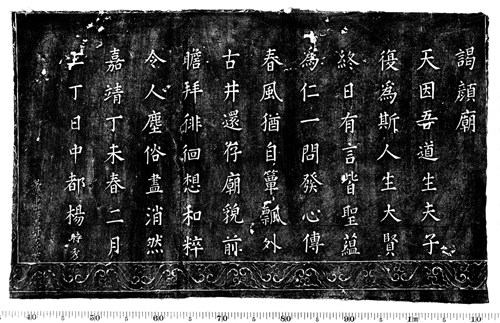 謁顔廟
天因吾道生夫子
復為斯人生大賢
終日有言皆聖蘊
為仁一問發心傳
春風猶自簞瓢外
古井還存廟貌前
瞻拜徘徊想和粹
令人塵俗盡消然
嘉靖丁未春二月
上丁日中都楊
40 5 50 5 60 5 70 5 80 5 90 5 1m 5 10